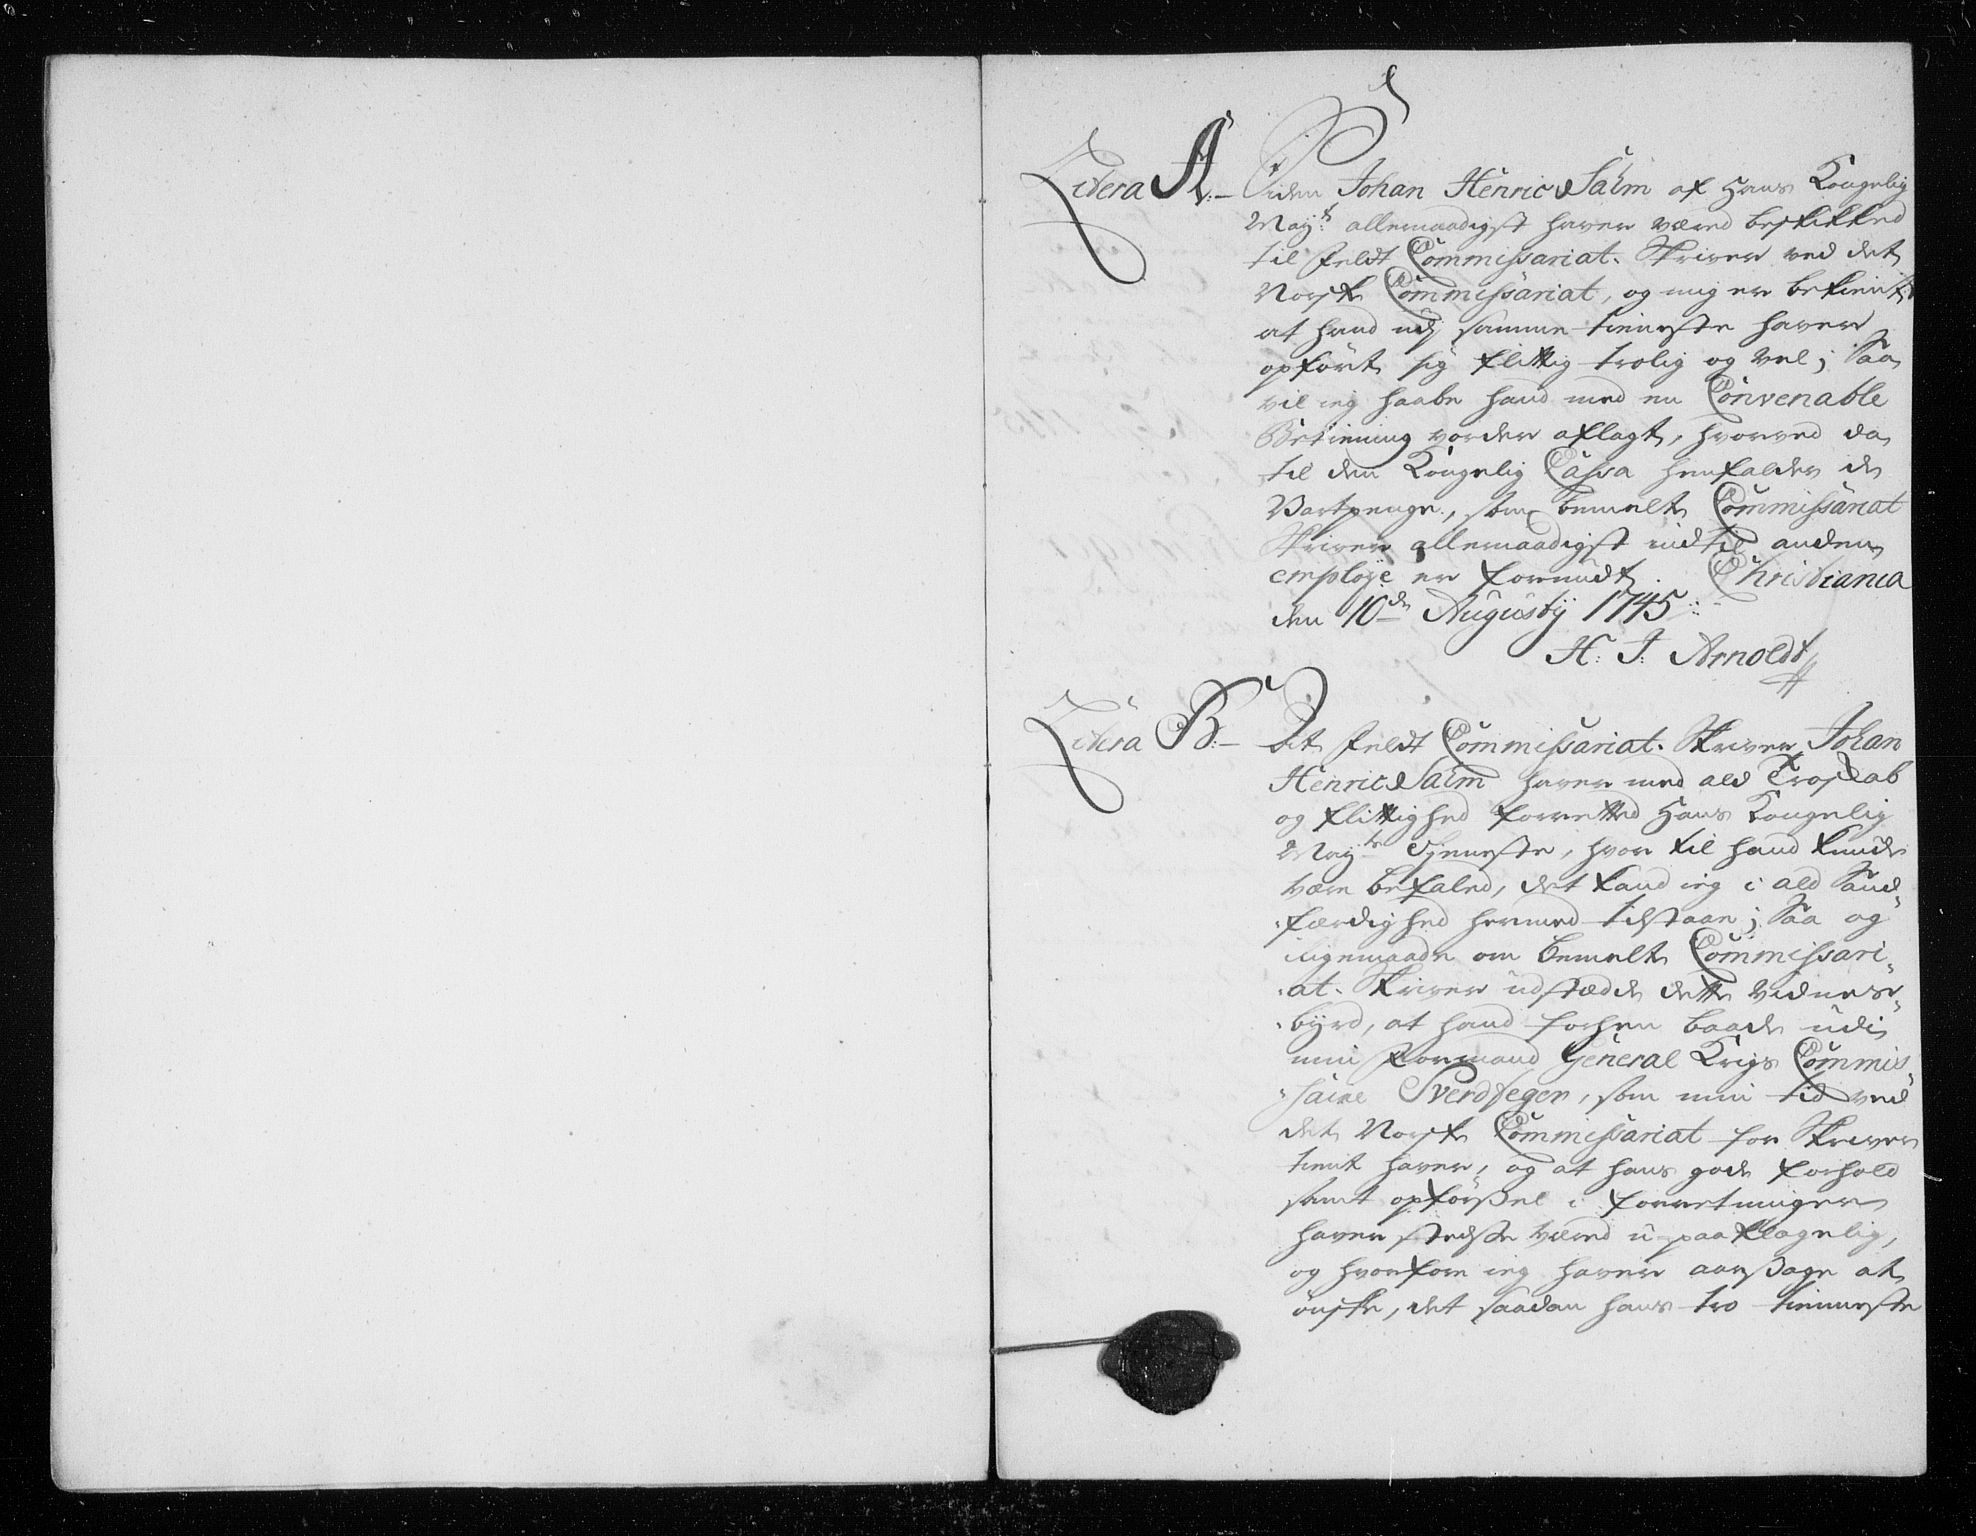 Litera A:– Siden Johan Henric Salm af Hans Kongelig
May.ᵗ allernaadigst haver væred beskikked
til Feldt Commissariat. Skriver ved det
Norsk Commissariat, og mig er bekient,
at hand udj samme tieneste haver
opført sig flittig trolig og vel; Saa
vil ieg haabe hand med en Convenable
Betiening vorder aflagt, hvorved da
til den Kongelig Cassa henfalder de
Vartpenge, som bemelte Commissariat
Skriver allernaadigst indtil anden
employe er forundt. Christiania
den 10de Augustij 1745.
H: J: Arnoldt
Litera B:– Det Feldt Commissariat. Skriver Johan
Henric Salm haver med ald Troskab
og flittighed forretted Hans Kongelig
May.ᵗˢ Tjeneste, hvor til hand kunde
være befaled, det kand ieg i ald Sand-
færdighed hermed tilstaae; Saa og
iligemaade om bemelte Commissari-
at. Skriver udstædde dette Vidnes-
byrd, at hand forhen baade udi
min Formand General Krigs Commis-
saire Sverdfeger, som min tid ved
det Norsk Commissariat for Skriver
tient haver, og at hans gode forhold
samt opførßel i forretninger
haver stedsse været u-paaklagelig,
og hvorfore ieg haver aarßage at
ønske, det saadan hans tro tienneste